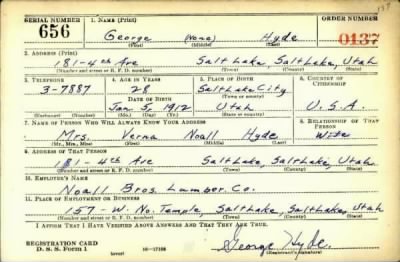 SERIAL NUMBER 1. NAME (Print) ORDER NUMBER
656 George (None) Hyde 0137
(First) (Middle) (Last)
2. ADDRESS (Print)
181-4th Ave Salt Lake, Salt Lake, Utah
(Number and street or R. F. D. number) (Town) (County) (State)
3. TELEPHONE 4. AGE IN YEARS 5. PLACE OF BIRTH 6. COUNTRY OF CITIZENSHIP
3-7887 28 Salt Lake City
DATE OF BIRTH (Town or county)
Jan 5, 1912 Utah U.S.A.
(Exchange) (Number) (Mo.) (Day) (Yr.) (State or country)
7. NAME OF PERSON WHO WILL ALWAYS KNOW YOUR ADDRESS 8. RELATIONSHIP OF THAT PERSON
Mrs. Verna Noall Hyde Wife
(Mr., Mrs., Miss) (First) (Middle) (Last)
9. ADDRESS OF THAT PERSON
181-4th Ave Salt Lake, Salt Lake, Utah
(Number and street or R. F. D. number) (Town) (County) (State)
10. EMPLOYER'S NAME
Noall Bros. Lumber. Co.
11. PLACE OF EMPLOYMENT OR BUSINESS
157-W. No. Temple, Salt Lake, Salt Lake, Utah
(Number and street or R. F. D. number) (Town) (County) (State)
I AFFIRM THAT I HAVE VERIFIED ABOVE ANSWERS AND THAT THEY ARE TRUE.
George Hyde
REGISTRATION CARD
D. S. S. Form 1 (over) (Registrant's signature)